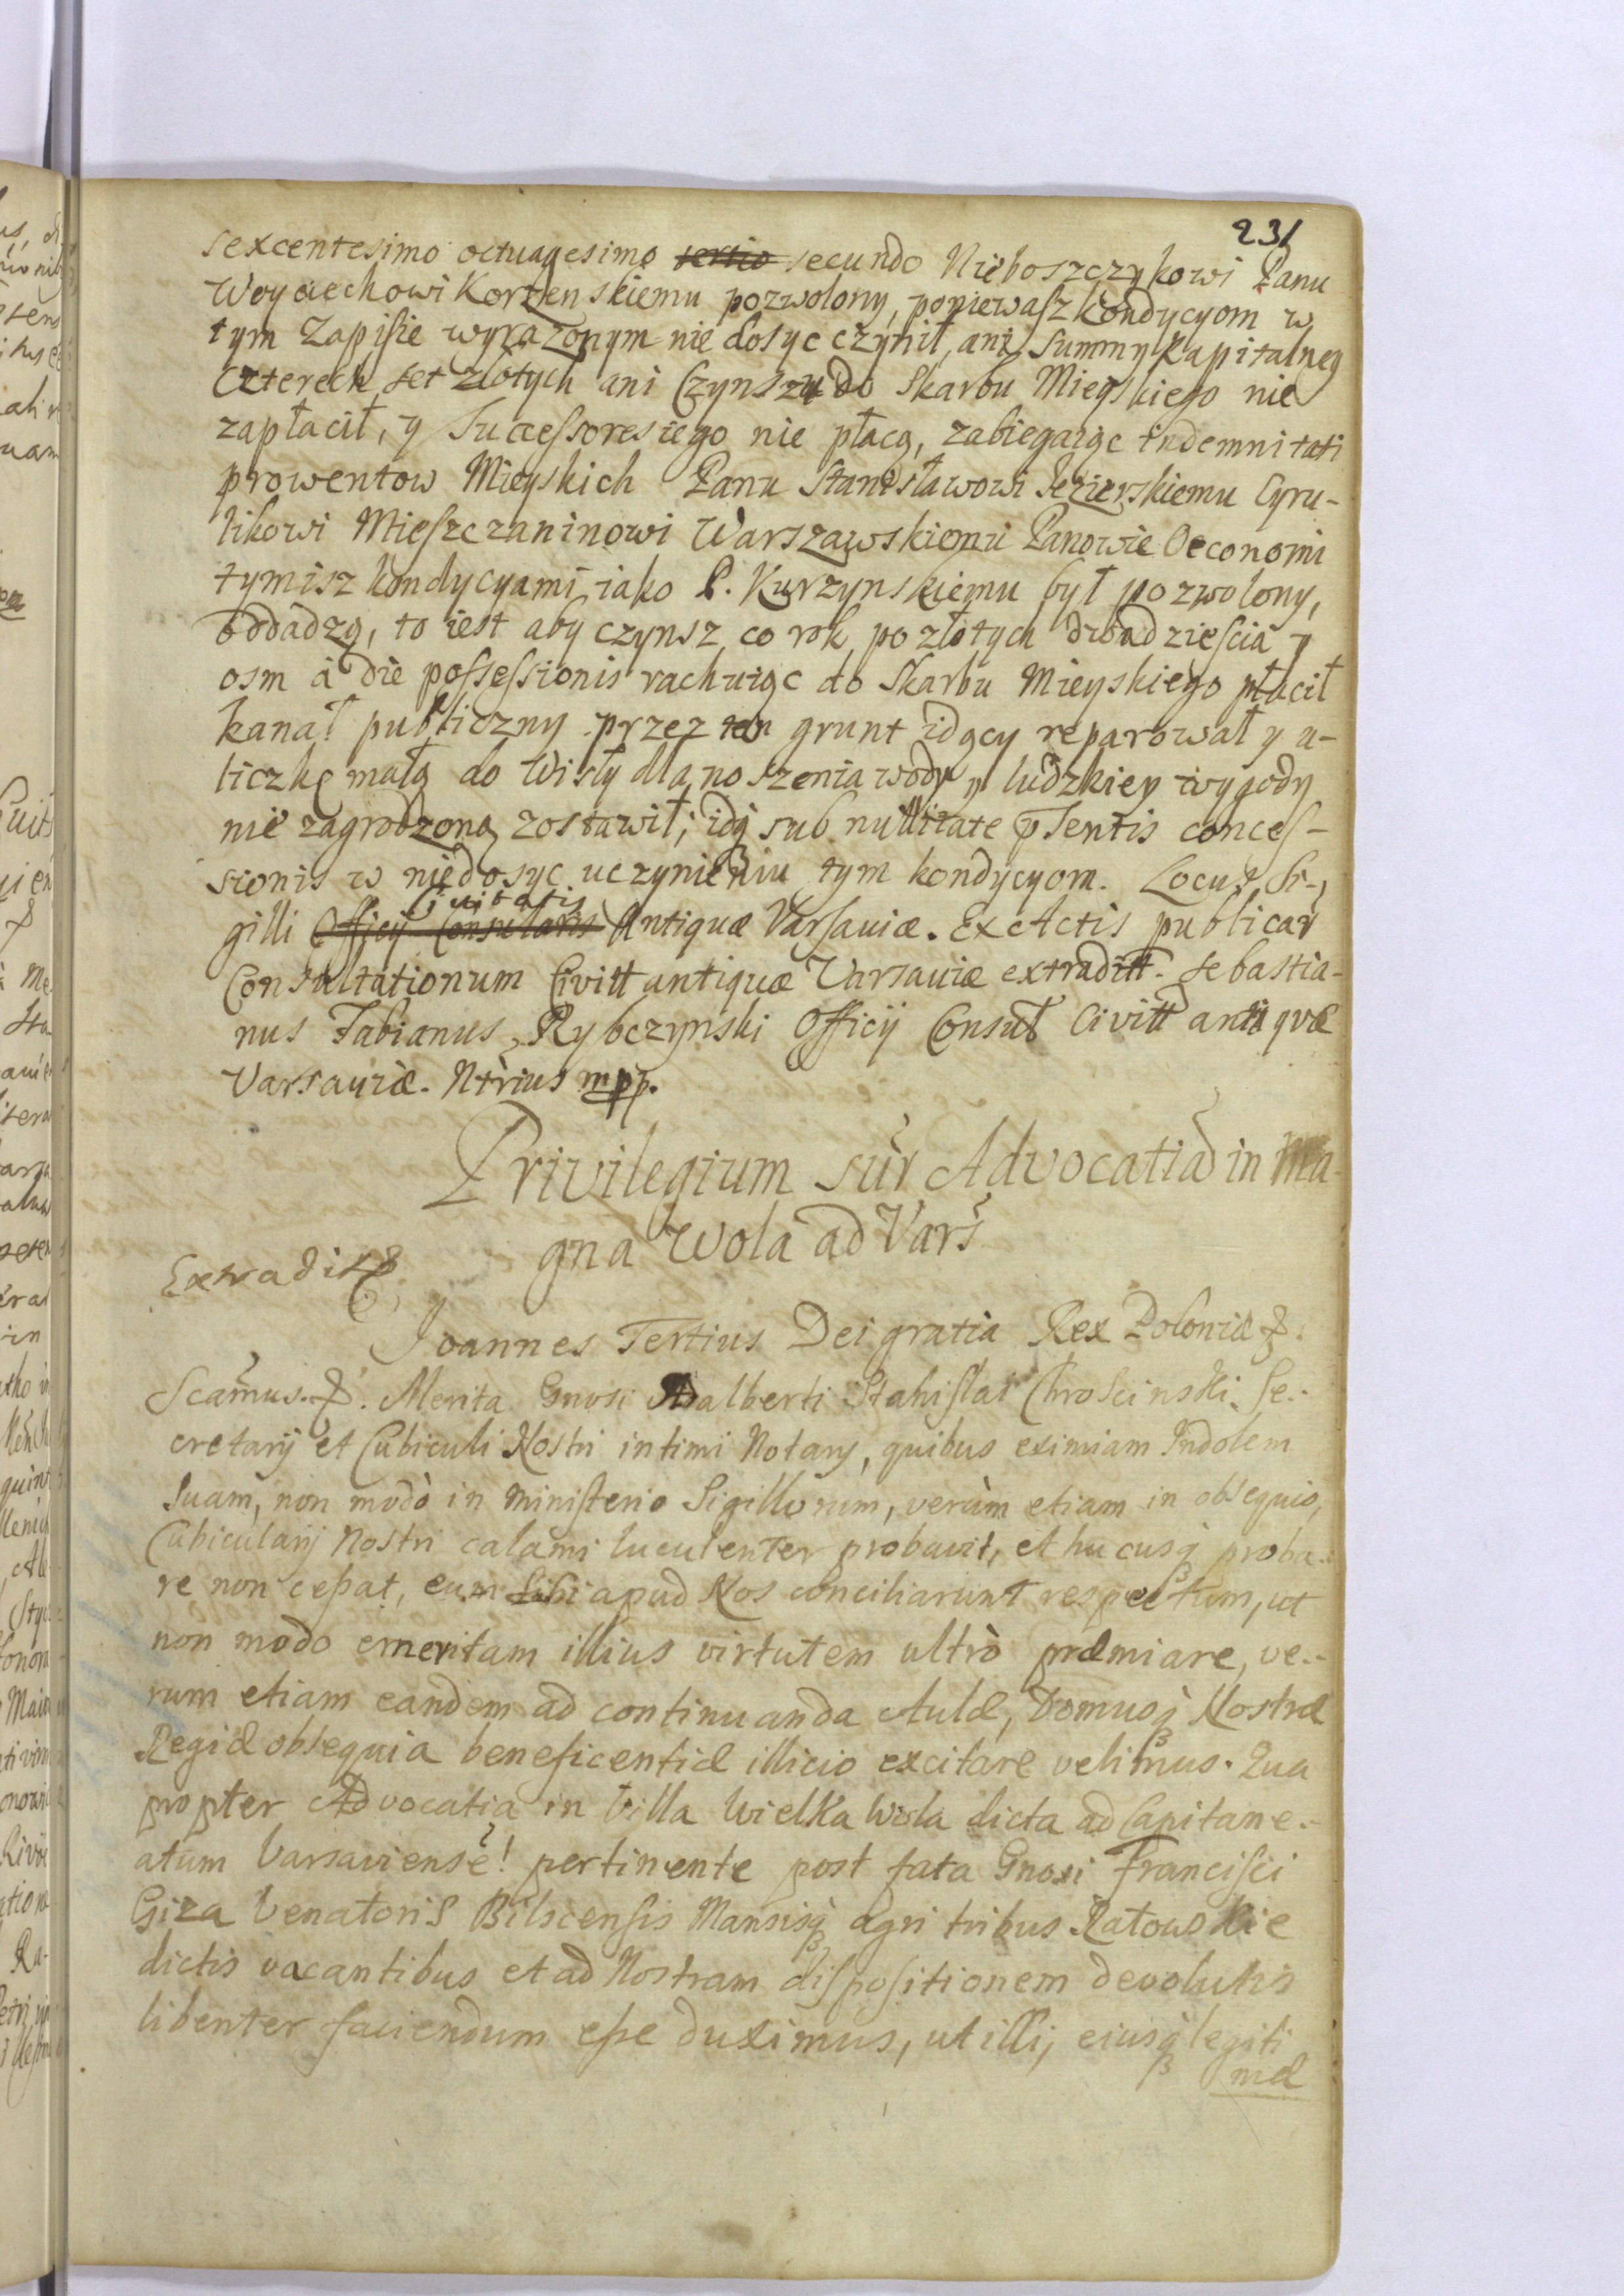 231
sexcentesimo octuagesimo tertio secundo Nieboszczykowi Panu
Woyciechowi Korzenskiemu pozwolony, poniewasz kondycyom w
tym Zapisie wyrazonym nie dosyc czynił, ani Summy Kapitalney
czterech set złotych ani Czynszu do Skarbu Mieyskiego nie
zapłacił, y Successores iego nie płacą, zabiegaiąc indemnitati
prowentow Mieyskich Panu Stanisławowi Jezierskiemu Cyru-
likowi Mieszczaninowi Warszawskiemu Panowie Oeconomi
tymisz kondycyami iako P. Kurzynskiemu był pozwolony,
oddadzą, to iest aby czynsz co rok po złotych dwadziescia y
osm à die possessionis rachuiąc do Skarbu Mieyskiego płacił
kanał publiczny przez ten grunt idący reparował y u-
liczkę małą do Wisły dla noszenia wody y ludzkiey wygody
nie zagrodzoną zostawił; idq sub nullitate pntis conces-
sionis w niedosyc uczynieniu tym kondycyom. Locus Si-
gilli Officij Consularis Civitatis Antiquæ Varsaviæ. Ex Actis publicar
Consultationum Civitt antiquæ Varsaviæ extraditt. Sebastia-
nus Fabianus Rybczynski Officij Consul Civitt antiquæ
Varsauiæ. Ntrius mpp.
Privilegium sur Advocatia in Ma-
gna Wola ad Vars
Extradit
Joannes Tertius Dei gratia Rex Poloniæ &.
Scamus. &. Merita Gnosi Adalberti Stanislai Chroscinski Se-
cretarij et Cubiculi Nostri intimi Notarij, quibus eximiam Indolem
Suam, non modò in Ministerio Sigillorum, verùm etiam in obsequio,
Cubicularij Nostri calami luculenter probavit, et hucusq proba-
re non cessat, eum Sibi apud Nos conciliarunt respectum, ut
non modo emeritam illius virtutem ultrò præmiare, ve-
rum etiam eandem ad continuanda Aulæ, Domusq Nostræ
Regiæ obsequia beneficentiæ illicio excitare velimus. Qua
propter Advocatia in Villa Wielka Wola dicta ad Capitane-
atum Varsaviense pertinente post fata Gnosi Francisci
Giza Venatoris Bilscensis Mansisq agri tribus Ratowskie
dictis vacantibus et ad Nostram dispositionem devolutis
libenter faciendum esse duximus, ut illi, eiusq legiti
mæ